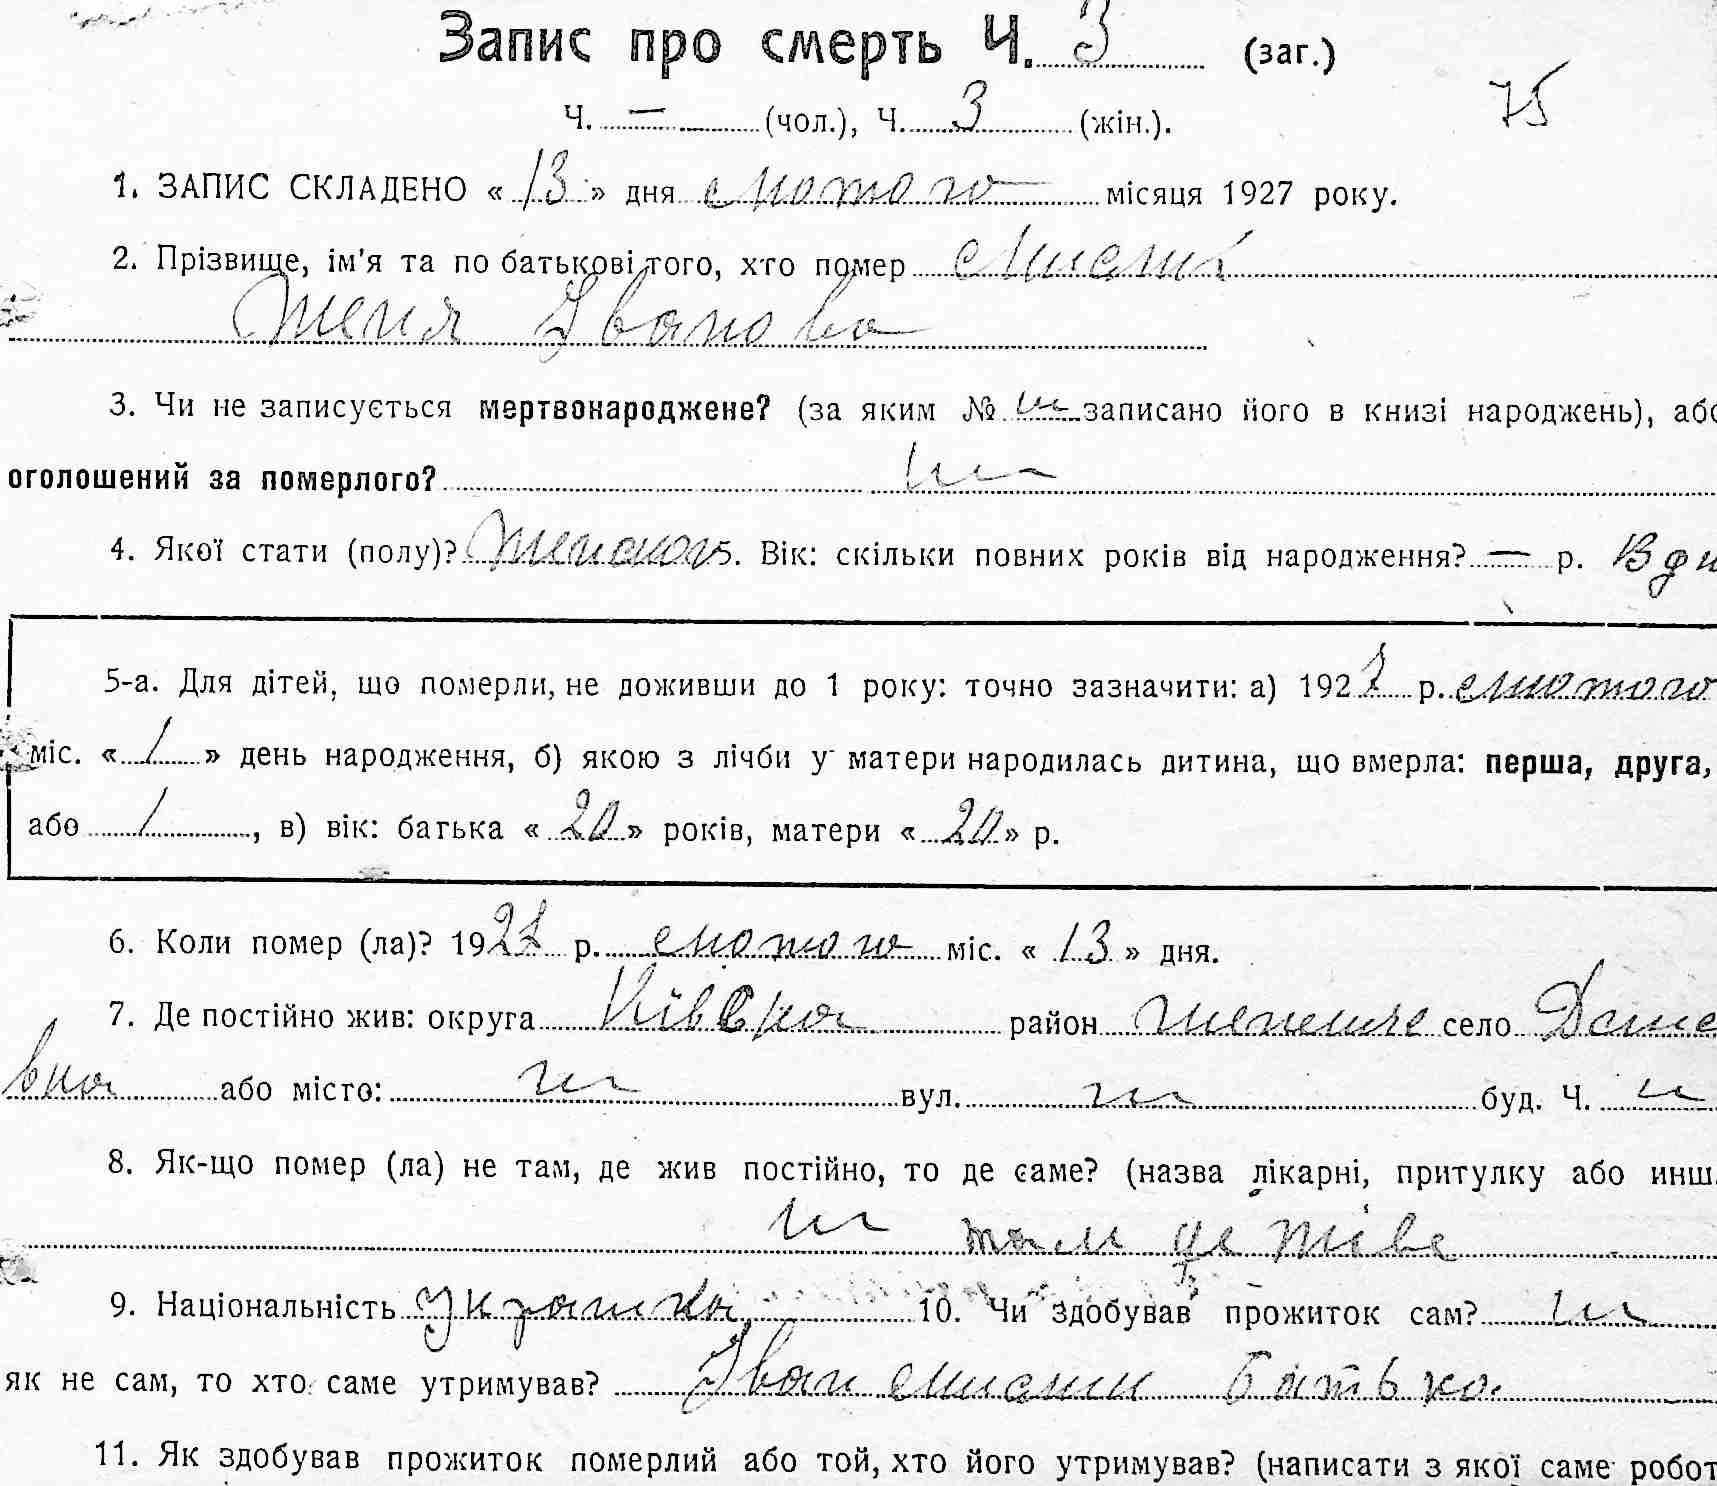 Запис про смерть Ч. 3 (заг.)
Ч. — (чол.), Ч. 3 (жін.).
75
1. ЗАПИС СКЛАДЕНО « 13 » дня лютого місяця 1927 року.
2. Прізвище, ім'я та по батькові того, хто помер
Женя Іванова
3. Чи не записується мертвонароджене? (за яким № ні записано його в книзі народжень), або
оголошений за померлого? ні
4. Якої стати (полу)? 5. Вік: скільки повних років від народження? — р. 13 дн
5-а. Для дітей, що померли, не доживши до 1 року: точно зазначити: а) 1927 р. лютого
міс. « 1 » день народження, б) якою з лічби у матери народилась дитина, що вмерла: перша, друга,
або 1, в) вік: батька « 20 » років, матери « 20 » р.
6. Коли помер (ла)? 1927 р. лютого міс. « 13 » дня.
7. Де постійно жив: округа Київска район село
або місто: ні вул. ні буд. Ч. н
8. Як-що помер (ла) не там, де жив постійно, то де саме? (назва лікарні, притулку або инш.
ні там де живе
9. Національність 10. Чи здобував прожиток сам? ні
як не сам, то хто саме утримував? Іван батько
11. Як здобував прожиток померлий або той, хто його утримував? (написати з якої саме робот